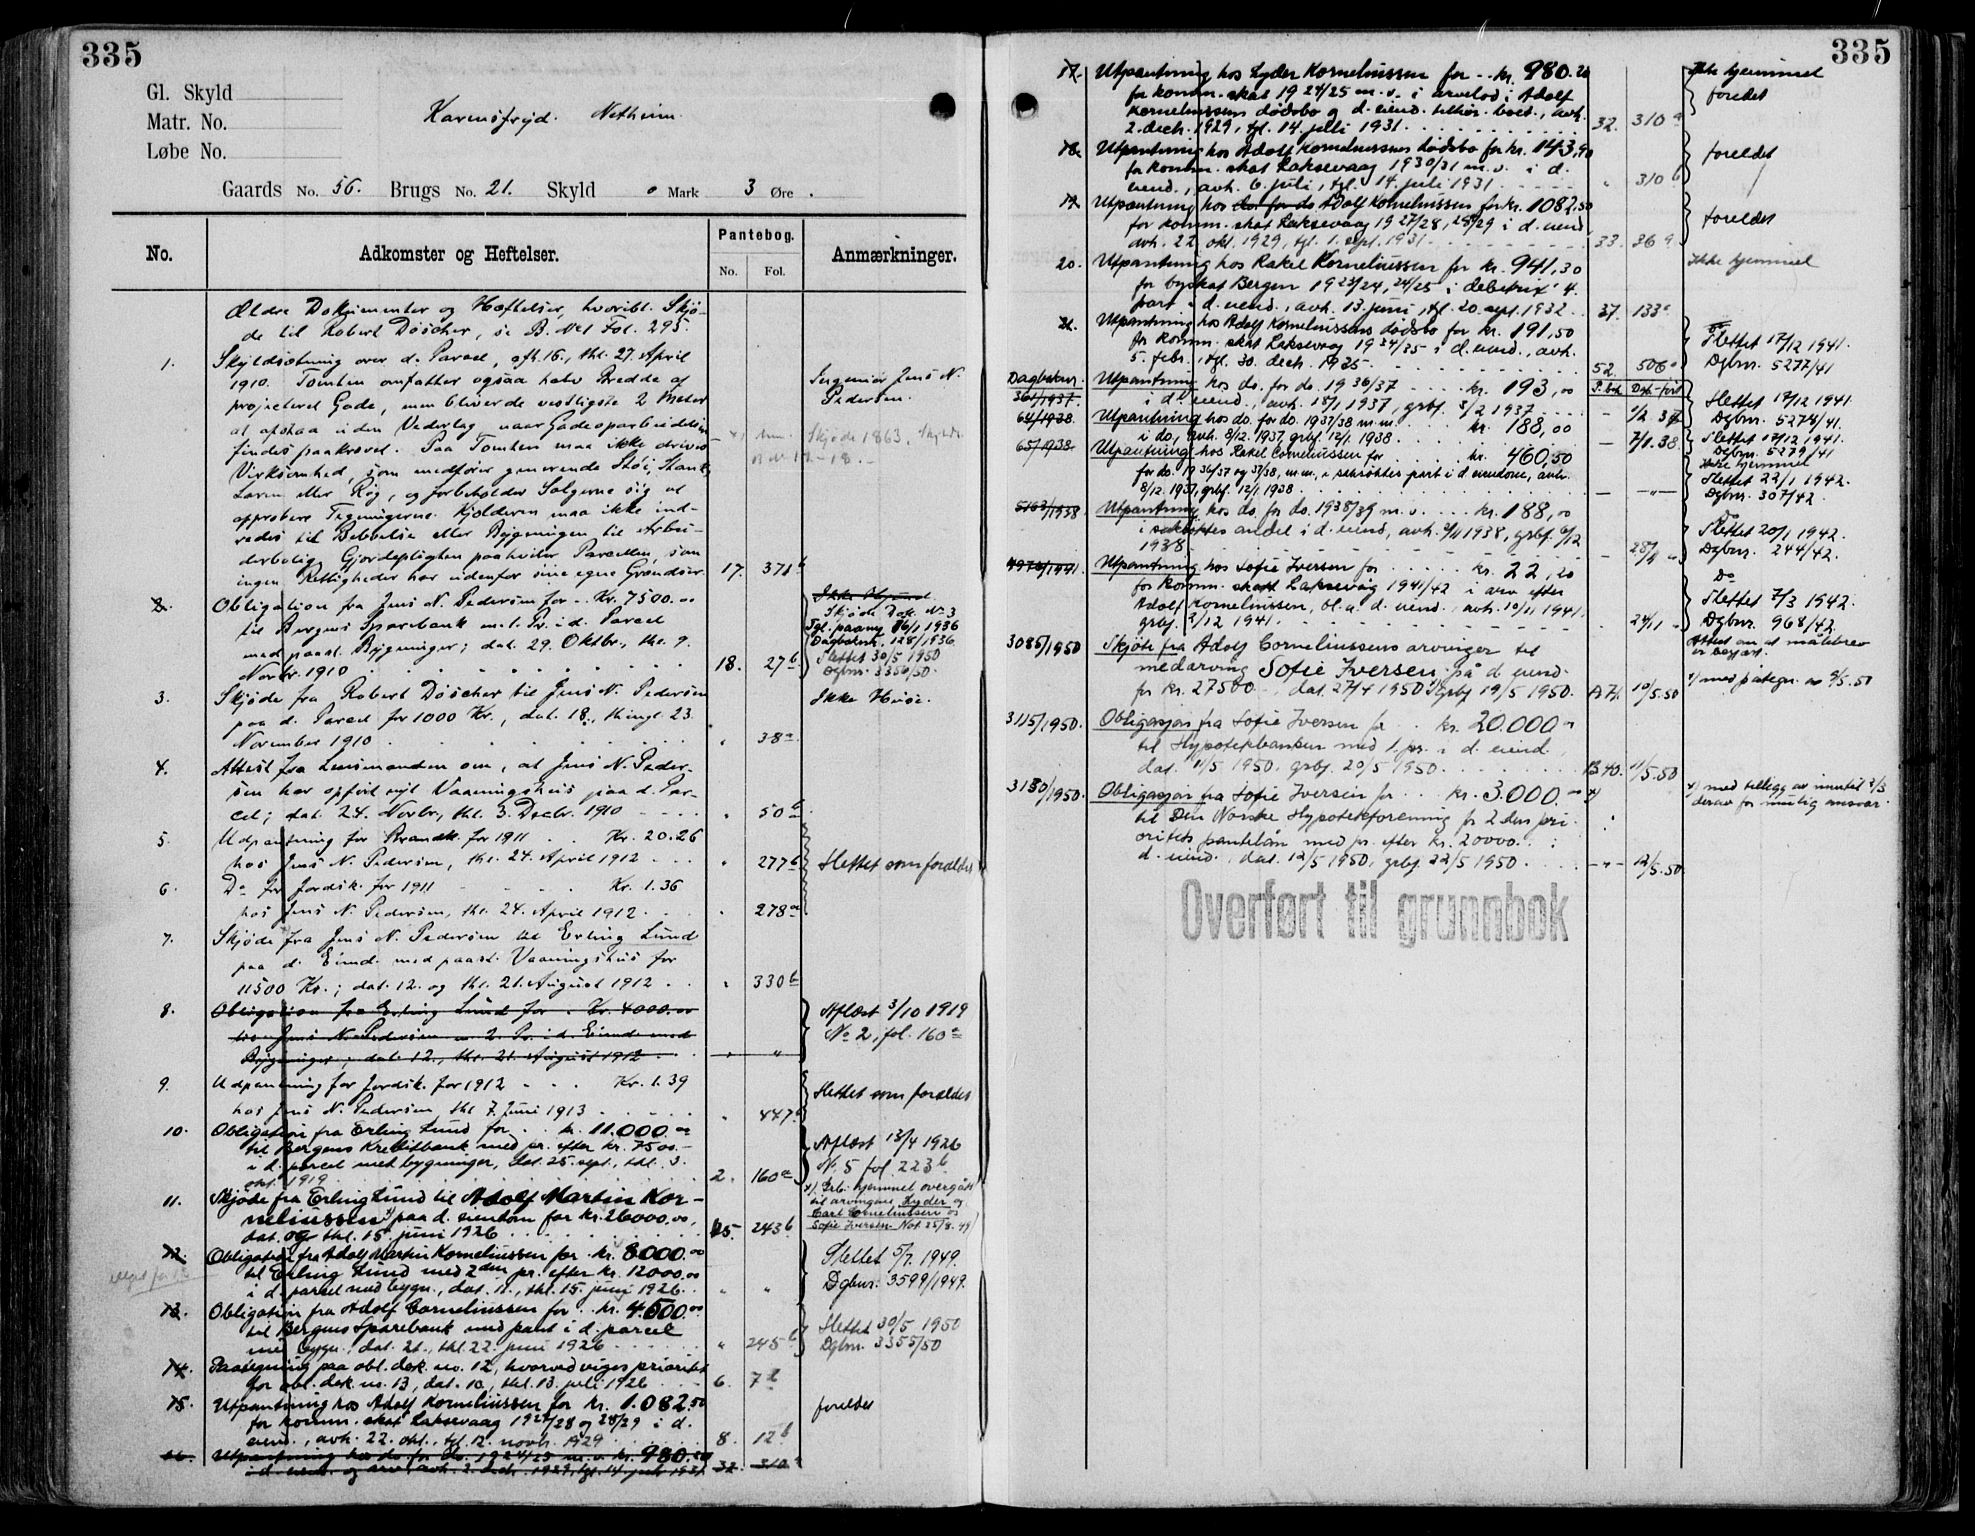 335
Gl. Skyld
Matr. No.
Løbe No.
Karensfryd. Netheim.
Gaards No. 56. Brugs No. 21. Skyld 0 Mark 3 Øre.
No. Adkomster og Heftelser. Pantebog. No. Fol. Anmærkninger.
Ældre Dokumenter og Hæftelser, hvoribl. Skjø-
de til Robert Döscher, se B. No 1 Fol. 295.
1. Skyldsætning over d. Parcel, afh. 16., thl. 27. April
1910. Tomten omfatter ogsaa halv Bredde af
projecteret Gade, men bliver de vestligste 2 Meter
at afstaa uden Vederlag, naar Gadeoparbeidelse
findes paakrævet. Paa Tomten maa ikke drives
Virksomhed, som medfører generende Støi, Stank,
Larm eller Røg, og forbeholder Sælgerne sig at
approbere Tegningerne. Kjælderen maa ikke ind-
redes til Beboelse eller Bygningen til Arbei-
derbolig. Gjerdepligten paahviler Parcellen, som
ingen Rettigheder har udenfor sine egne Grændser. 17. 371 b
Ingeniør Jens N.
Pedersen.
Skjøde 1863,
2. Obligation fra Jens N. Pedersen for - Kr. 7500.00
til Bergens Sparebank m. 1. Pr. i d. Parcel
med paast. Bygninger; dat. 29. Oktbr., thl. 9.
Novbr. 1910 18. 27 b
Skjøde Dok. No 3
Tgl. paany 16/1 1936
Dagboknr. 128/1936
Slettet 30/5 1950
Dgbnr. 3356/50.
3. Skjøde fra Robert Döscher til Jens N. Pedersen
paa d. Parcel for 1000 Kr., dat. 18., thingl. 23.
November 1910 " 38 a
Ikke Huse.
4. Attest fra Lensmanden om, at Jens N. Peder-
sen har opført nyt Vaaningshus paa d. Par-
cel; dat. 24. Novbr., thl. 3. Decbr. 1910 " 50 a
5. Udpantning for Brandk. for 1911 Kr. 20.26
hos Jens N. Pedersen, thl. 24. April 1912 " 277 b
Slettet som forældet
6. Do for Jordsk. for 1911 Kr. 1.36
hos Jens N. Pedersen, thl. 24. April 1912 " 278 a
7. Skjøde fra Jens N. Pedersen til Erling Lund
paa d. Eiend. med paast. Vaaningshus for
11500 Kr.; dat. 12. og thl. 21. August 1912 " 330 b
8. Obligation fra Erling Lund for Kr. 4000.00
til Jens N. Pedersen m. 2. Pr. i d. Eiend. med
Bygninger; dat. 12., thl. 21. August 1912 " "
Aflæst 3/10 1919
No 2, fol. 160 a
9. Udpantning for Jordsk. for 1912 Kr. 1.39
hos Jens N. Pedersen, thl. 7. Juni 1913 " 447 a
Slettet som forældet
10. Obligation fra Erling Lund for kr. 11.000.00
til Bergens Kreditbank med pr. efter kr. 7500.-
i d. parcel med bygninger, dat. 25. sept., thl. 3.
okt. 1919 2. 160 a
Aflæst 13/4 1926
No. 5 fol. 223 b
11. Skjøde fra Erling Lund til Adolf Martin Kor-
neliussen x) paa d. eiendom for kr. 26000.00,
dat. og thl. 15. juni 1926 5. 243 b
x) Grb. hjemmel overgått
til arvingene Lyder og
Carl Corneliussen og
Sofie Iversen. Not. 25/8.49
12. Obligation fra Adolf Martin Korneliussen for kr. 8000.00
til Erling Lund med 2den pr. efter kr. 12000.00
i d. parcel med bygn., dat. 11., thl. 15. juni 1926. " "
Slettet 5/7. 1949.
Dgbnr. 3599/1949.
13. Obligation fra Adolf Corneliussen for kr. 4.500.00
til Bergens Sparebank med pant i d. parcel
med bygn., dat. 21., thl. 22. juni 1926 " 245 b
Slettet 30/5 1950
Dgbnr. 3355/50
14. Paategning paa obl. dok. no. 12, hvorved viges prioritet
for obl. dok. no. 13, dat. 10., thl. 13. juli 1926 6. 7 a
15. Utpantning hos Adolf Korneliussen for kr. 1.082.50
for komm. skat Laksevaag 1927/28 og 28/29 i d.
eiend., avh. 22. okt., tgl. 12. novb. 1929 8. 12 b
foreldet
16. Utpantning hos do. for do. 1924/25 m. v. kr. 980.20
i d. eiend. og arv, avh. 2. decb. 1929, tgl. 14. juli 1931. 32. 310 a
335
17. Utpantning hos Lyder Korneliussen for kr. 980.20
for komm. skat 1924/25 m. v. i arvelod i Adolf
Korneliussens dødsbo og d. eiend. tilhør. boet, avh.
2. decb. 1929, tgl. 14. juli 1931. 32. 310 a
Ikke hjemmel
foreldet
18. Utpantning hos Adolf Korneliussens dødsbo for kr. 143,90
for komm. skat Laksevaag 1930/31 m. v. i d.
eiend., avh. 6. juli, tgl. 14. juli 1931 " 310 b
foreldet
19. Utpantning hos do. for do Adolf Korneliussen for kr. 1082.50
for komm. skat Laksevaag 1927/28, 28/29 i d. eiend.
avh. 22. okt. 1929, tgl. 1. sept. 1931 33. 36 a
foreldet
20. Utpantning hos Rakel Korneliussen for kr. 941,30
for byskat Bergen 1923/24, 24/25 i debetrix' 4.
part i d. eiend., avh. 13. juni, tgl. 20. sept. 1932 37. 133 a
Ikke hjemmel
21. Utpantning hos Adolf Korneliussens dødsbo for kr. 191,50
for komm. skat Laksevåg 1934/35 i d. eiend., avh.
5. febr., tgl. 30. decb. 1935 52. 506 a
Slettet 17/12 1941.
Dgbnr. 5277/41
Dagboknr.
361/1937. Utpantning hos do. for do. 1936/37 kr. 193,00
i d. eiend., avh. 15/1 1937, grbf. 3/2 1937 - 1/2 37
Slettet 17/12 1941.
Dgbnr. 5278/41.
64/1938. Utpantning hos do. for do. 1937/38 m. m. kr. 188,00
i do., avh. 8/12. 1937, grbf. 12/1. 1938 - 7/1.38
Slettet 17/12 1941.
Dgbnr. 5279/41
65/1938. Utpantning hos Rakel Corneliussen for kr. 460,50
for do. 1936/37 og 37/38, m. m. i saksøktes part i d. eiendom, avh.
8/12. 1937, grbf. 12/1 1938 - -"-
Ikke hjemmel
Slettet 22/1 1942.
Dgbnr. 307/42.
5163/1938. Utpantning hos do. for do. 1938/39 m. v. kr. 188,00
i saksøktes andel i d. eiend, avh. 2/11 1938, grbf. 6/12
1938
Do
Slettet 20/1 1942.
Dgbnr. 244/42.
4976/1941. Utpantning hos Sofie Iversen for kr. 22,20
for komm. skatt Laksevåg 1941/42 i arv efter
Adolf Korneliussen, bl. a. d. eiend., avh. 10/11 1941.
grbf. 2/12 1941. - 24/11 -
Do
Slettet 7/3 1942.
Dgbnr. 968/42.
3085/1950 Skjøte fra Adolf Corneliussens arvinger til
medarving Sofie Iversen på d. eiend.
for kr. 27500.-, dat. 27/4 1950 x) grbf. 19/5 1950. A 71. 10/5.50
Attest om at målebrev
er begjært.
x) med påtegn. av 9/5.50
3115/1950. Obligasjon fra Sofie Iversen for kr. 20.000.00
til Hypotekbanken med 1. pr. i d. eiend.,
dat. 11/5 1950. grbf. 20/5 1950. B 40. 11/5.50
3130/1950. Obligasjon fra Sofie Iversen for kr. 3.000.00 x)
til Den Norske Hypotekforening for 2den pri-
oritets pantelån med pr. efter kr. 20000.- i
d. eiend., dat. 12/5 1950, grbf. 22/5 1950 -"- 12/5.50
x) med tillegg av inntil 2/3
derav for mulig ansvar.
Overført til grunnbok